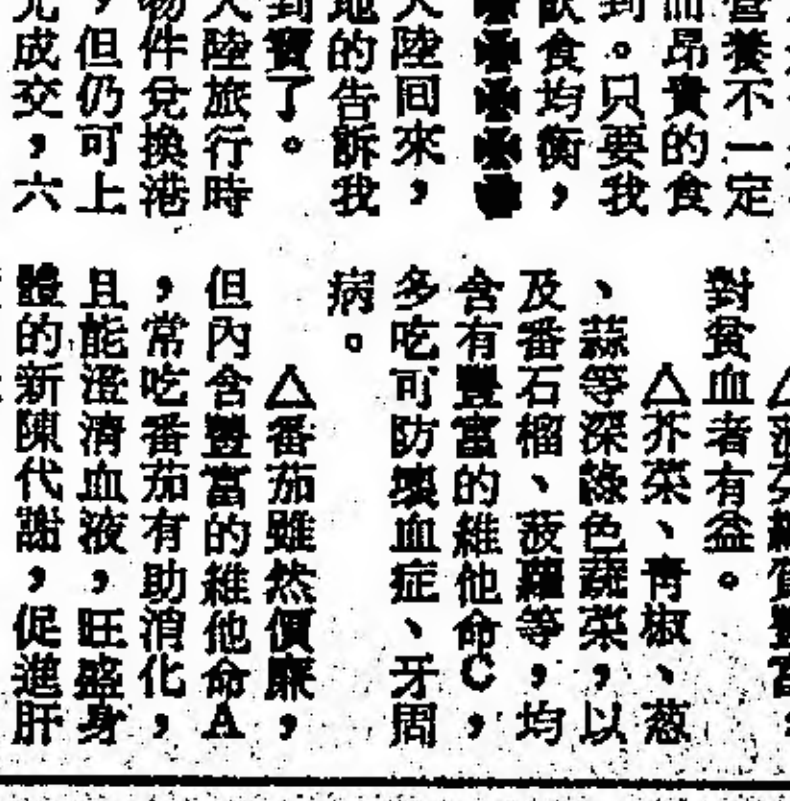 營養不一定
而昂貴的食
到。只要我
飲食均衡，
大陸囘來，
地的告訴我
到寶了。
大陸旅行時
物件兌換港
，但仍可上
元成交，六
對貧血者有益。
△芥菜、青椒、葱
、蒜等深綠色蔬菜，以
及番石榴、菠蘿等，均
含有豐富的維他命C，
多吃可防壞血症、牙周
病。
△番茄雖然價廉，
但內含豐富的維他命A
，常吃番茄有助消化，
且能澄清血液，旺盛身
體的新陳代謝，促進肝